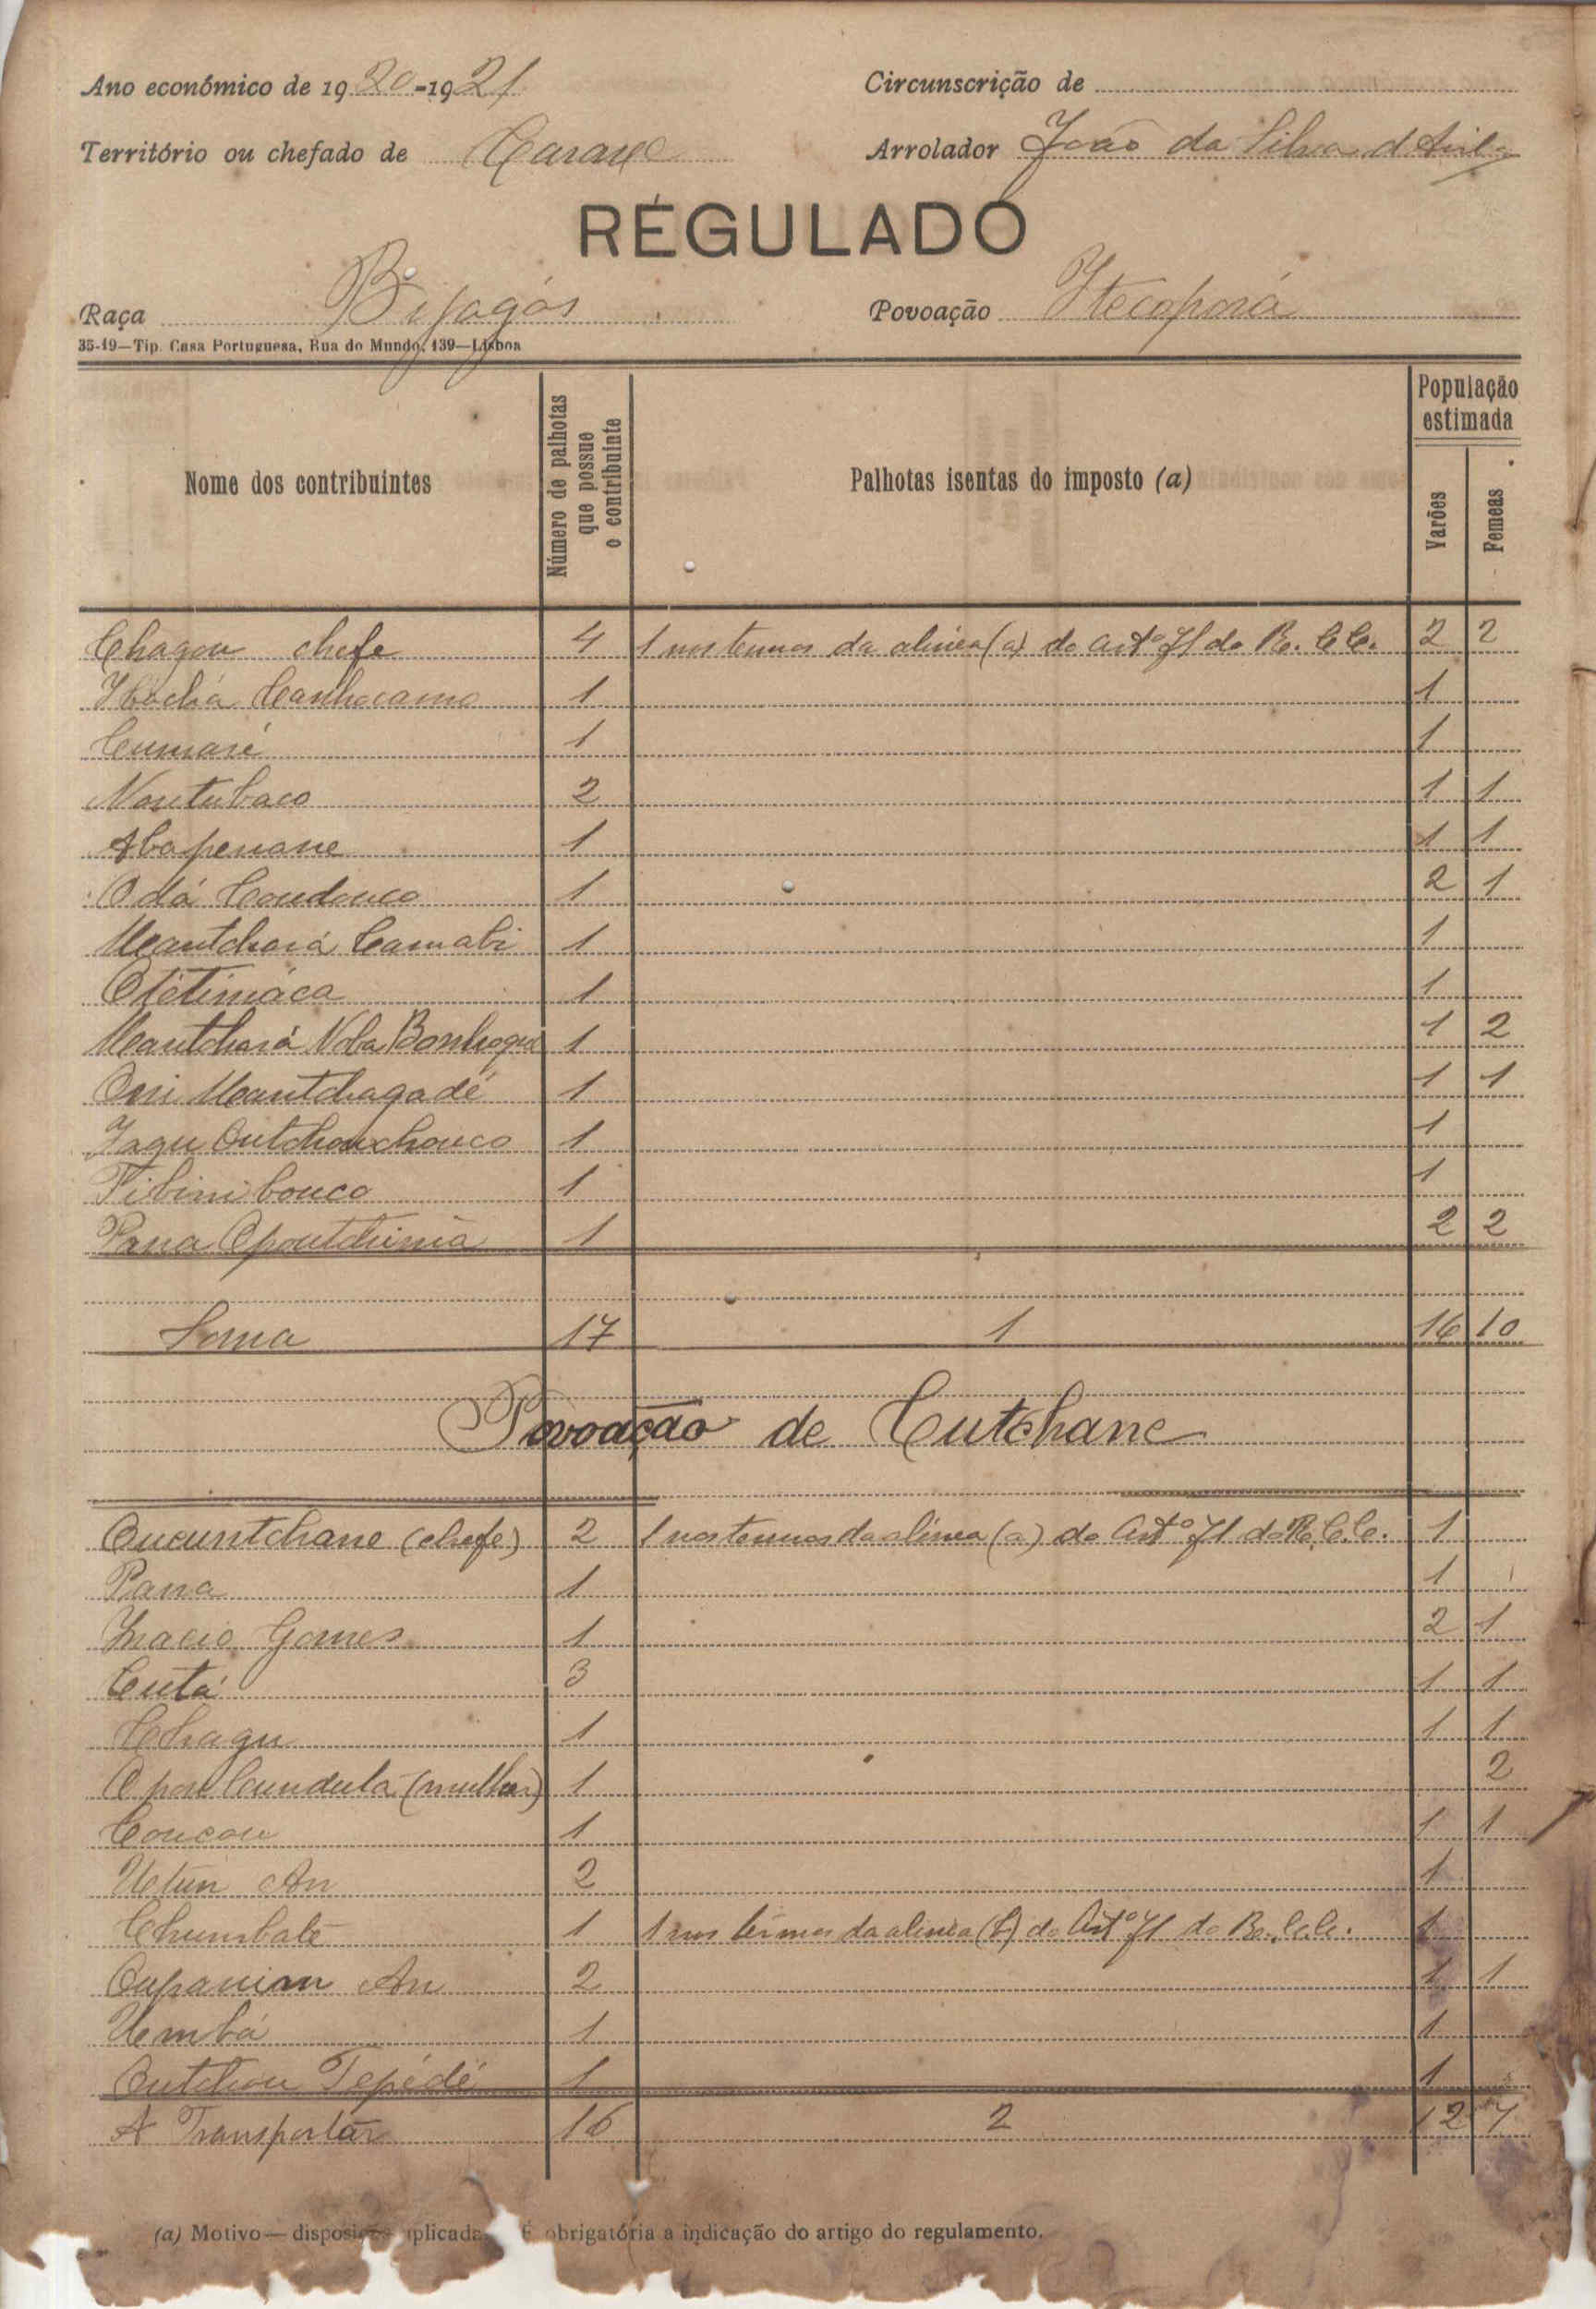 Ano económico de 1920-1921
Circunscrição de
Território ou chefado de Caraxe
Arrolador João da Silva d'Avila
REGULADO
Raça Bijagós
Povoação Itecoporá
35-19—Tip. Casa Portuguesa, Rua do Mundo, 139—Lisboa
Nome dos contribuintes
Número de palhotas que possue o contribuinte
Palhotas isentas do imposto (a)
População estimada
Varões
Femeas
Chagou chefe 4 1 nos termos da alinea (a) do artº 71 do R. C. C. 2 2
Canhocamo 1 1
Cumaré 1 1
Nontubaco 2 1 1
Abapenane 1 1 1
Odá Condouco 1 2 1
Mantchorá Camabi 1 1
Otétimáca 1 1
Mantchorá Noba 1 1 2
Oni Mantchagadé 1 1 1
Jagu Cutchouchouco 1 1
Tibini bouco 1 1
Pana Opoutchimá 1 2 2
Soma 17 1 16 10
Povoação de Cutchane
Cucuntchane (chefe) 2 1 nos termos da alinea (a) do Artº 71 do R. C. C. 1
Pana 1 1
Inacio Gomes 1 2 1
Cutá 3 1 1
Chagu 1 1 1
Opou Cundulá (mulher) 1 2
Coucou 1 1 1
An 2 1
Chumbate 1 1 nos termos da alinea (b) do Artº 71 do R. C. C. 1
An 2 1 1
1 1
Cutchou Tepédé 1 1
A Transportar 16 2 12 7
(a) Motivo—disposição aplicada. É obrigatória a indicação do artigo do regulamento.